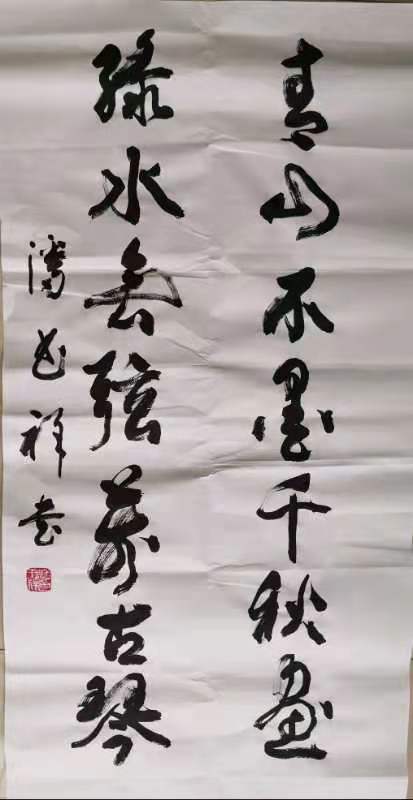 青山不墨千秋画
绿水无弦万古琴
潘 祥书